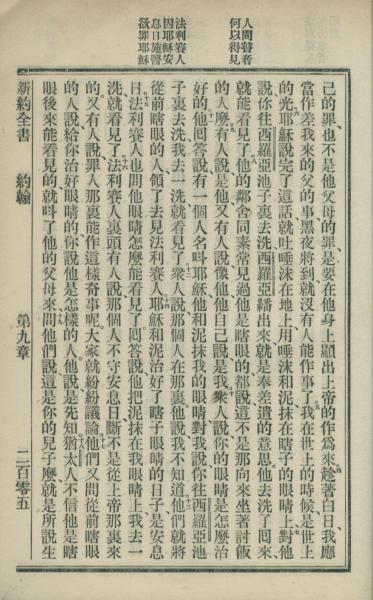 人問瞽者
何以得見
法利賽人
因耶穌安
息日施醫
欲罪耶穌
己的罪也不是他父母的罪是要在他身上顯出上帝的作爲來趁著白日我應
當作差我來的父的事黑夜將到就沒有人能作事了我在世上的時候是世上
的光耶穌說完了這話就吐唾沫在地上用唾沫和泥抹在瞎子的眼睛上對他
說你往西羅亞池子裏去洗西羅亞繙出來就是奉差遣的意思他去洗了囘來
就能看見了他的鄰舍同素常見過他是瞎眼的都說這不是那向來坐著討飯
的人麼有人說是他又有人說像他他自己說是我衆人說你的眼睛是怎麼治
好的他囘答說有一個人名呌耶穌他和泥抹我的眼睛對我說你往西羅亞池
子裏去洗我去一洗就看見了衆人說那個人在那裏他說我不知道他們就將
從前瞎眼的人領了去見法利賽人耶穌和泥治好了瞎子眼睛的日子是安息
日法利賽人也問他眼睛怎麼能看見了囘答說他把泥抹在我眼睛上我去一
洗就看見了法利賽人裏頭有人說那個人不守安息日斷不是從上帝那裏來
的又有人說罪人那裏能作這樣奇事呢大家就紛紛議論他們又問從前瞎眼
的人說給你治好眼睛的你說他是怎樣的人他說是先知猶太人不信他是瞎
眼後來能看見的就呌了他的父母來問他們說這是你的兒子麼就是所說生
新約全書 約翰 第九章 二百零五